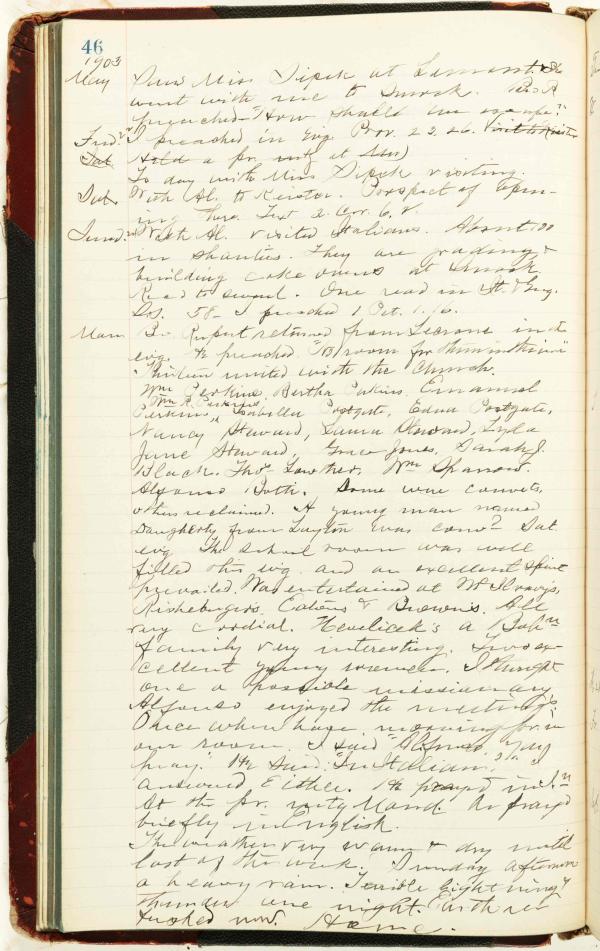 46
1903
May Saw Miss Sipek at Lemont & she
went with me to Smock. Bro. R
preached "How shall we escape."
I preached in evg. Prov. 23.26.
Held a pr. mtg at
To day with Miss Sipek visiting.
Sat. With Al. to Keister. Prospect of open-
ing there. Text 2. Cor. 6.
With Al. visited Italians. About 100
in shanties. They are grading &
building coke ovens at Smock.
Read to several. One read in It. & Eng.
I preached 1 Pet. 1.16.
Bro Rupert returned from Leisenring in d
evg. & preached "No room for them in the inn"
Thirteen united with the Church.
Wm Perkins, Bertha Perkins, Emanuel
Wm R Perkins
Perkins, Isabella Postgate, Edna Postgate,
Nancy Steward, Laura Steward, Lyla
June Steward, Grace Jones, Sarah J.
Black. Thos Lowther, Wm Sparrow.
Alfonso Both. Some were converts,
others reclaimed. A young man named
Daugherty from Layton was convd Sat
evg. The school room was well
filled this evg. and an excellent spirit
prevailed. Was entertained at
Risheburgers. Eatons & Browns. All
very cordial. Hevelicek's a Bohn
family very interesting. Two ex-
cellent young women. I thought
one a possible missionary.
Alfonso enjoyed the meetings
Once when have morning pr. in
our room. I said "Alfonso, you
pray." He said "In Italian?" I
answered Either. He prayed in In
At the pr. mtg Mond he prayed
briefly in English.
The weather very warm & dry until
last of the week. Sunday afternoon
a heavy rain. Terrible lightning &
thunder one night. Earth re-
freshed now. Home.